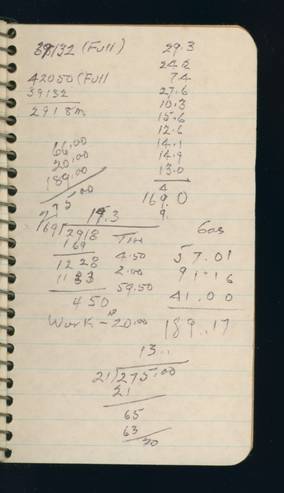 39132 (Full)
42050 (Full
39132
2918 m
29.3
24.2
7.4
27.6
10.3
15.6
12.6
14.1
14.9
13.0
4
169.0
9.
66.00
20.00
189.00
275.00
19.3
169)2918
169
1228
1183
450
TIH
4.50
2.00
59.50
Gas
57.01
91.16
41.00
189.17
Work - 20.00
13..
21)275.00
21
65
63
20